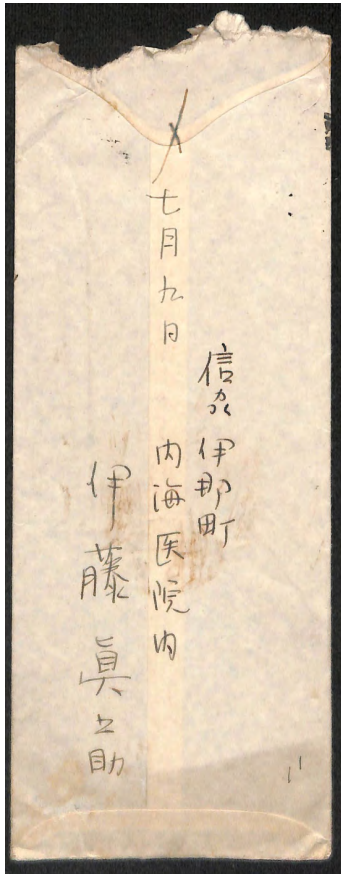 七月九日
信州 伊那町
内海医院内
伊藤眞之助